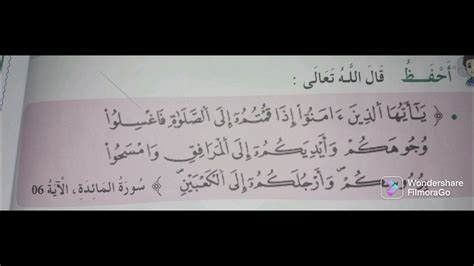 أَحْفَظُ قَالَ اللَّهُ تَعَالَى :
• ﴿ يَٰٓأَيُّهَا اَلذِينَ ءَامَنُوٓاْ إِذَا قُمْتُمُۥٓ إِلَى اَلصَّلَوٰةِ فَاغْسِلُواْ
وُجُوهَكُمْ وَأَيْدِيَكُمُۥٓ إِلَى اَلْمَرَافِقِ وَامْسَحُواْ
بِرُءُوسِكُمْ وَأَرْجُلَكُمُۥٓ إِلَى اَلْكَعْبَيْنِ ﴾ سُورَةُ المَائِدَةِ ، الْآيَةُ 06
Wondershare
FilmoraGo